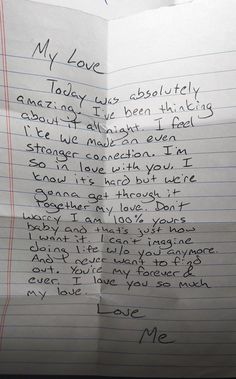 My Love
Today was absolutely
amazing. I've been thinking
about it all night. I feel
like we made an even
stronger connection. I'm
so in love with you, I
know it's hard but we're
gonna get through it
together my love. Don't
worry I am 100% yours
baby and that's just how
I want it. I can't imagine
doing life w/o you anymore.
And I never want to find
out. You're my forever &
ever. I love you so much
my love.
Love
Me